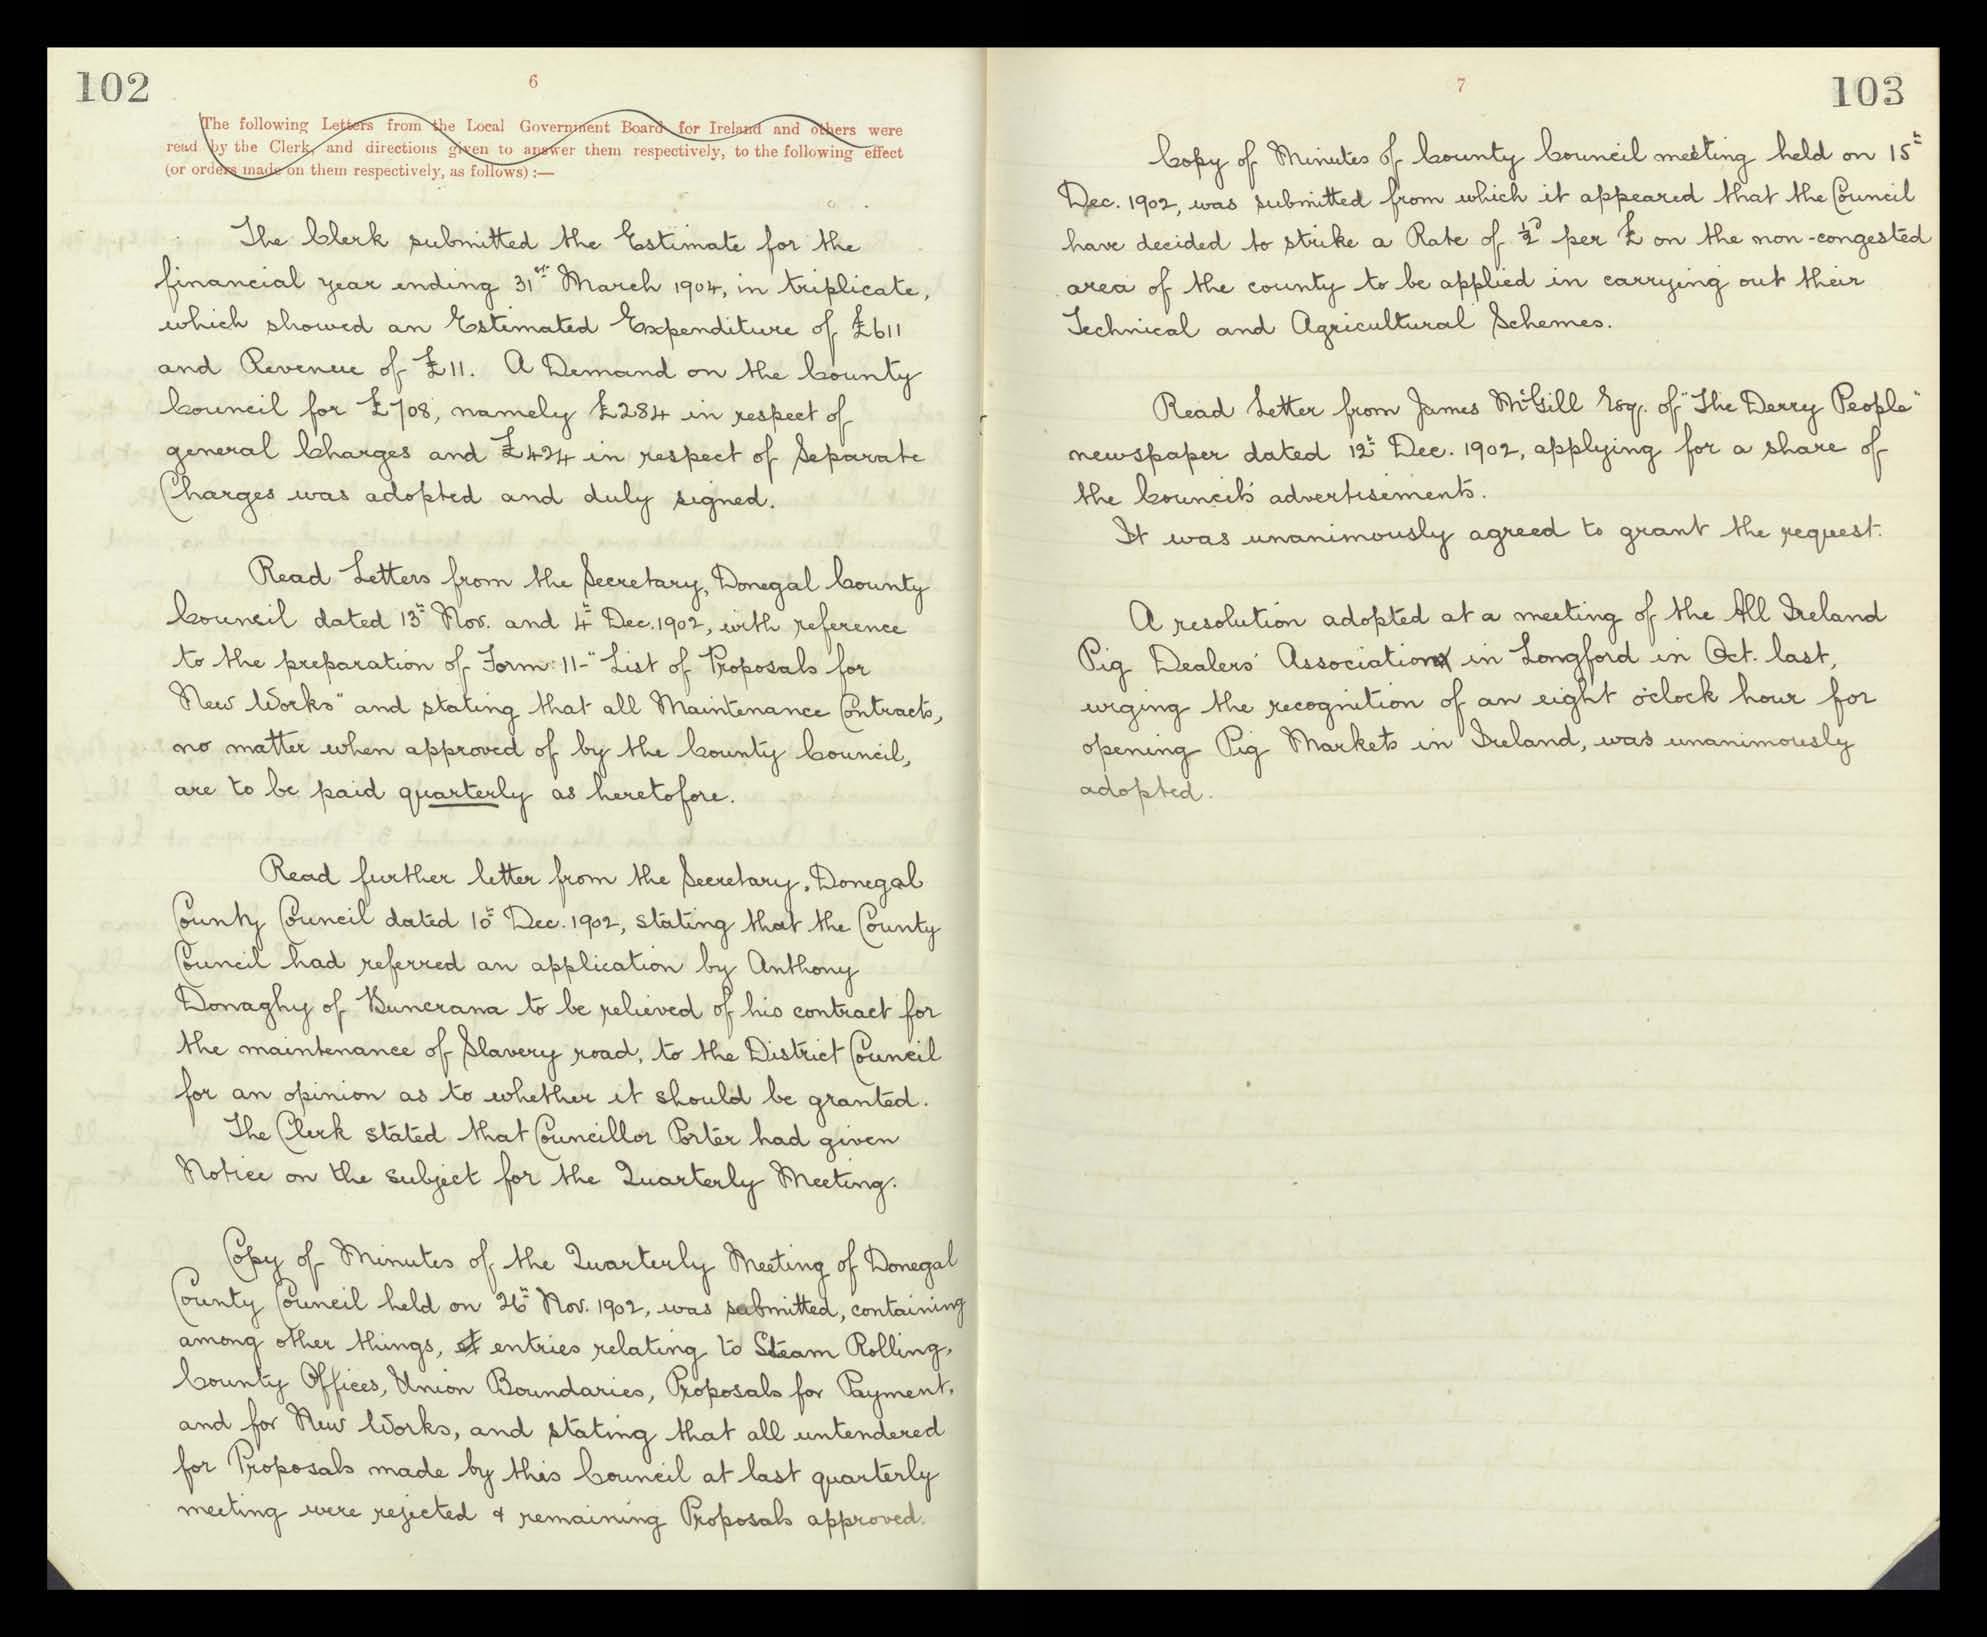 102
6
The following Letters from the Local Government Board for Ireland and others were
read by the Clerk, and directions given to answer them respectively, to the following effect
(or orders made on them respectively, as follows) :—
The Clerk submitted the Estimate for the
financial year ending 31st March 1904, in triplicate,
which showed an Estimated Expenditure of £611
and Revenue of £11. A Demand on the County
Council for £708, namely £284 in respect of
general Charges and £424 in respect of Separate
Charges was adopted and duly signed.
Read Letters from the Secretary, Donegal County
Council dated 13th Nov. and 4th Dec. 1902, with reference
to the preparation of Form 11-"List of Proposals for
New Works" and stating that all Maintenance Contracts,
no matter when approved of by the County Council,
are to be paid quarterly as heretofore.
Read further letter from the Secretary, Donegal
County Council dated 10th Dec. 1902, stating that the County
Council had referred an application by Anthony
Donaghy of Buncrana to be relieved of his contract for
the maintenance of Slavery road, to the District Council
for an opinion as to whether it should be granted.
The Clerk stated that Councillor Porter had given
Notice on the subject for the Quarterly Meeting.
Copy of Minutes of the Quarterly Meeting of Donegal
County Council held on 26th Nov. 1902, was submitted, containing
among other things, entries relating to Steam Rolling,
County Offices, Union Boundaries, Proposals for Payment,
and for New Works, and stating that all untendered
for Proposals made by this Council at last quarterly
meeting were rejected & remaining Proposals approved.
7
103
Copy of Minutes of County Council meeting held on 15th
Dec. 1902, was submitted from which it appeared that the Council
have decided to strike a Rate of ½d per £ on the non-congested
area of the county to be applied in carrying out their
Technical and Agricultural Schemes.
Read Letter from James McGill Esq. of "The Derry People"
newspaper dated 12th Dec. 1902, applying for a share of
the Council's advertisements.
It was unanimously agreed to grant the request.
A resolution adopted at a meeting of the All Ireland
Pig Dealers' Association in Longford in Oct. last,
urging the recognition of an eight o'clock hour for
opening Pig Markets in Ireland, was unanimously
adopted.